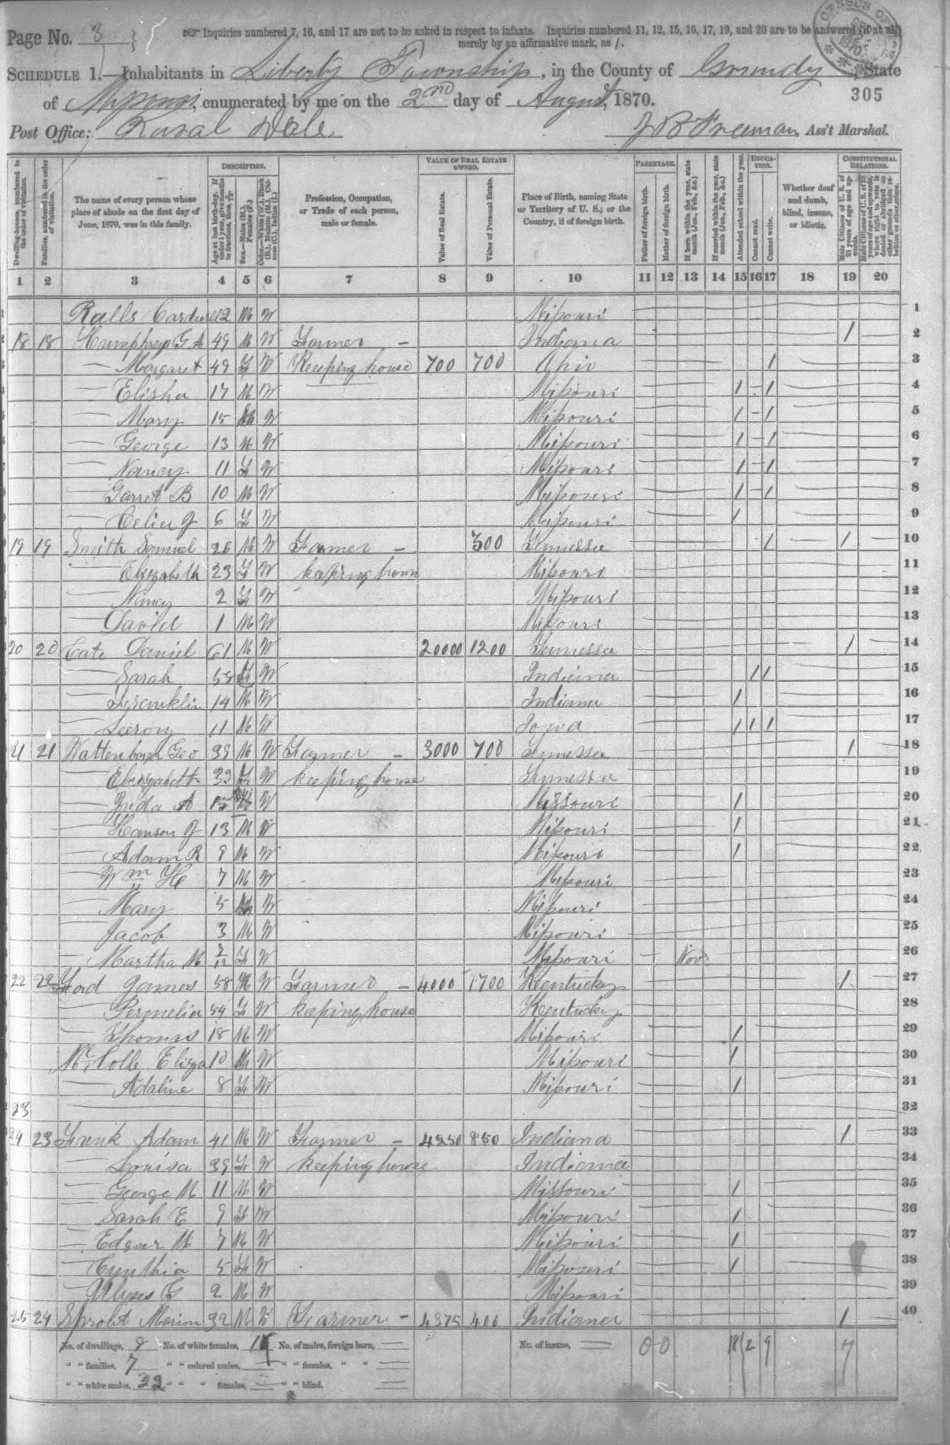 Page No. 3
Inquiries numbered 7, 16, and 17 are not to be asked in respect to infants. Inquiries numbered 11, 12, 15, 16, 17, 19, and 20 are to be answered (if at all)
merely by an affirmative mark, as /.
SCHEDULE 1.—Inhabitants in Liberty Township, in the County of Grundy, State
of Missouri, enumerated by me on the 2nd day of August, 1870.
305
Post Office: Rural Dale
J B Freeman, Ass't Marshal.
The name of every person whose place of abode on the first day of June, 1870, was in this family.
DESCRIPTION.
Profession, Occupation, or Trade of each person, male or female.
VALUE OF REAL ESTATE OWNED.
Value of Real Estate.
Value of Personal Estate.
Place of Birth, naming State or Territory of U. S.; or the Country, if of foreign birth.
PARENTAGE.
Father of foreign birth.
Mother of foreign birth.
Attended school within the year.
EDUCATION.
Cannot read.
Cannot write.
Whether deaf and dumb, blind, insane, or idiotic.
CONSTITUTIONAL RELATIONS.
1 2 3 4 5 6 7 8 9 10 11 12 13 14 15 16 17 18 19 20
Ralls 12 M W Missouri 1
18 18 Humphrey G 49 M W Farmer – Indiana 1 2
— Margaret 49 F W Keeping house 700 700 Ohio 1 3
— Elisha 17 M W Missouri 1 – 1 4
— Mary 15 W Missouri 1 – 1 5
— George 13 M W Missouri 1 – 1 6
— Nancy 11 F W Missouri 1 – 1 7
— Garrot B 10 M W Missouri 1 – 1 8
— Celia J 6 F W Missouri 1 9
19 19 Smith Samuel 26 M W Farmer – 300 Tennessee 1 1 10
— Elizabeth 23 F W keeping house Missouri 11
— Nancy 2 F W Missouri 12
— David 1 M W Missouri 13
20 20 Cate Daniel 61 M W 20000 1200 Tennessee 1 14
— Sarah 58 F W Indiana 1 1 15
— Franklin 14 M W Indiana 1 16
— Leeroy 11 M W Iowa 1 1 1 17
21 21 Wattenbarger Geo 38 M W Farmer – 3000 700 Tennessee 1 18
— Elizabeth 33 F W keeping house Tennessee 19
— A 15 W Missouri 1 20
— Hanson J 13 M W Missouri 1 21
— Adam R 9 M W Missouri 1 22
— Wm H 7 M W Missouri 23
— Mary 5 W Missouri 24
— Jacob 3 M W Missouri 25
— Martha M F W Missouri Nov 26
22 22 Ford James 58 M W Farmer – 4000 1700 Kentucky 1 27
— Permelia 54 F W keeping house Kentucky 28
— Thomas 18 M W Missouri 1 29
Eliza 10 W Missouri 1 30
— Adaline 8 F W Missouri 1 31
23 32
24 23 Funk Adam 41 M W Farmer – 4250 850 Indiana 1 33
— Louisa 39 F W keeping house Indiana 34
— George M 11 M W Missouri 1 35
— Sarah E 9 F W Missouri 1 36
— Edgar M 7 M W Missouri 1 37
— Cynthia 5 F W Missouri 1 38
— Ulyses G 2 M W Missouri 39
25 24 Marion 32 M W Farmer – 4375 400 Indiana 1 40
No. of dwellings, 8 No. of white females, No. of males, foreign born, No. of insane, 0 0 18 2 9 7
" " families, 7 " " colored males, " " females, " "
" " white males, 22 " " " females, " " blind.